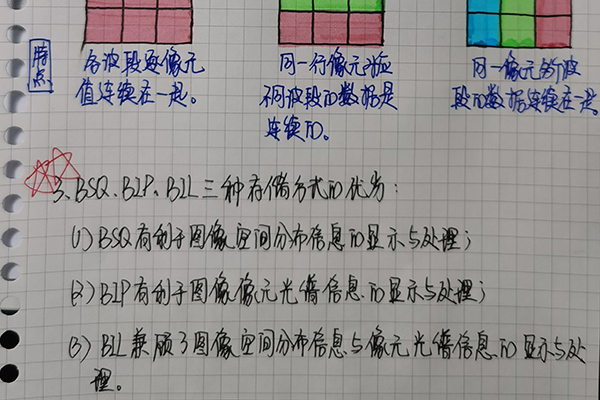 特点
各波段逐像元
值连续在一起。
同一行像元对应
不同波段的数据是
连续的。
同一像元各波
段的数据连续在一起。
3、BSQ、BIP、BIL三种存储方式的优劣:
(1) BSQ有利于图像空间分布信息的显示与处理;
(2) BIP有利于图像像元光谱信息的显示与处理;
(3) BIL兼顾了图像空间分布信息与像元光谱信息的显示与处
理。